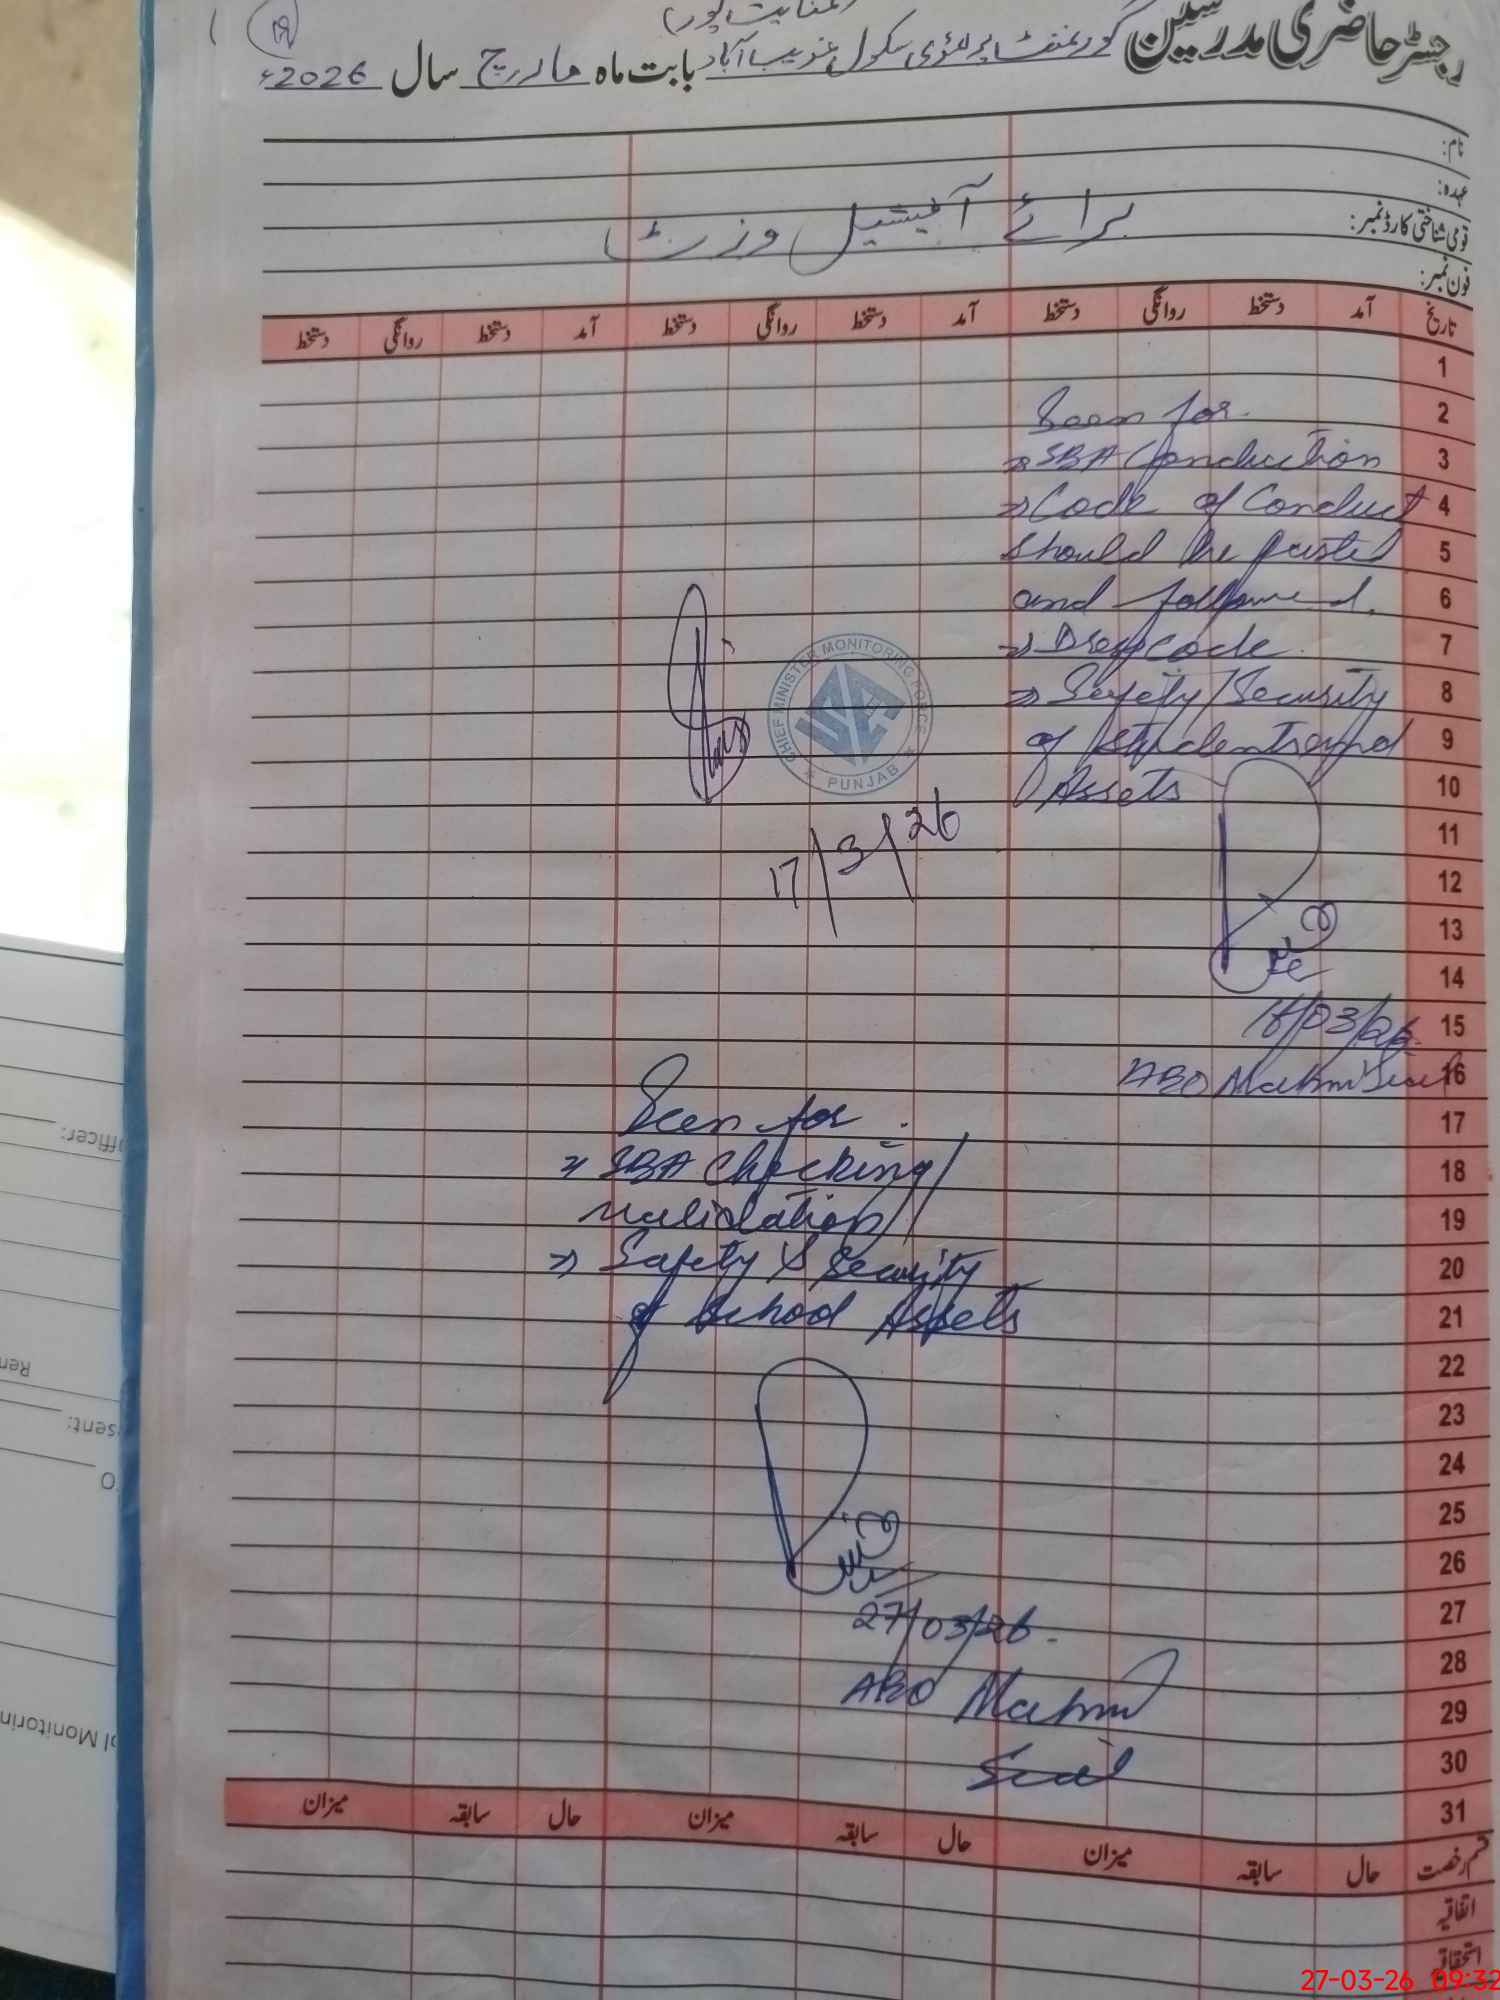 رجسٹر حاضری مدرسین گورنمنٹ پرائمری سکول غریب آباد بابت ماہ مارچ سال 2026ء
نام:
عہدہ:
قومی شناختی کارڈ نمبر:
فون نمبر:
برائے آفیشیل وزٹ
تاریخ آمد دستخط روانگی دستخط آمد دستخط روانگی دستخط آمد دستخط روانگی دستخط
1
2
3
4
5
6
7
8
9
10
11
12
13
14
15
16
17
18
19
20
21
22
23
24
25
26
27
28
29
30
31
Seen for.
⇒ SBA Conduction
⇒ Code of Conduct
should be pasted
and followed.
⇒ Dress code.
⇒ Safety/Security
of students and
Assets
18/03/26.
AEO Mahni Seal
CHIEF MINISTER MONITORING FORCE
PUNJAB
17/3/26
Seen for :
⇒ SBA Checking/
validation/
⇒ Safety & Security
of School Assets
27/03/26.
AEO Mahni
Seal
قسم رخصت حال سابقہ میزان حال سابقہ میزان حال سابقہ میزان
اتفاقیہ
استحقاقی
officer:
sent:
ol Monitorin
27-03-26 09:32